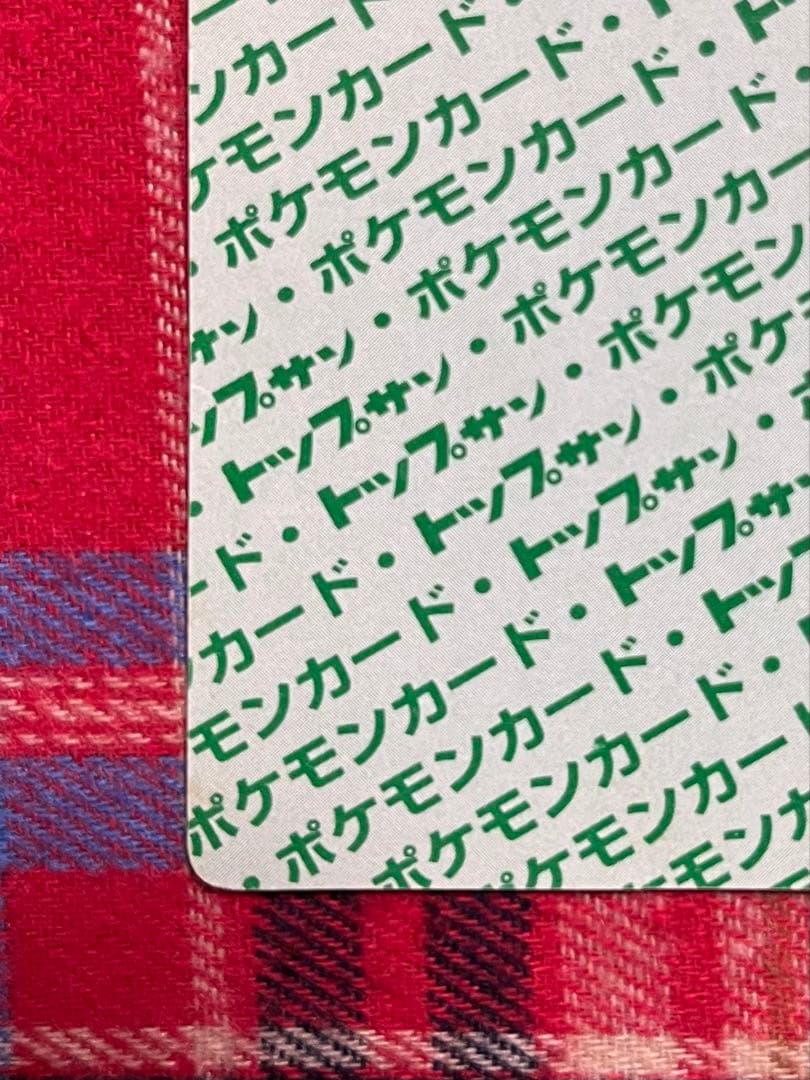 ー
ンカード
ケモンカード・
・ポケモンカード・
サン・ポケモンカード・ト
ップサン・ポケモンカード・
・トップサン・ポケモンカー
ード・トップサン・ポケモン
カード・トップサン・ポケ
モンカード・トップサン・
ポケモンカード・トップサ
・ポケモンカード・トップ
ポケモンカード・
ポケモンカー
モンカ